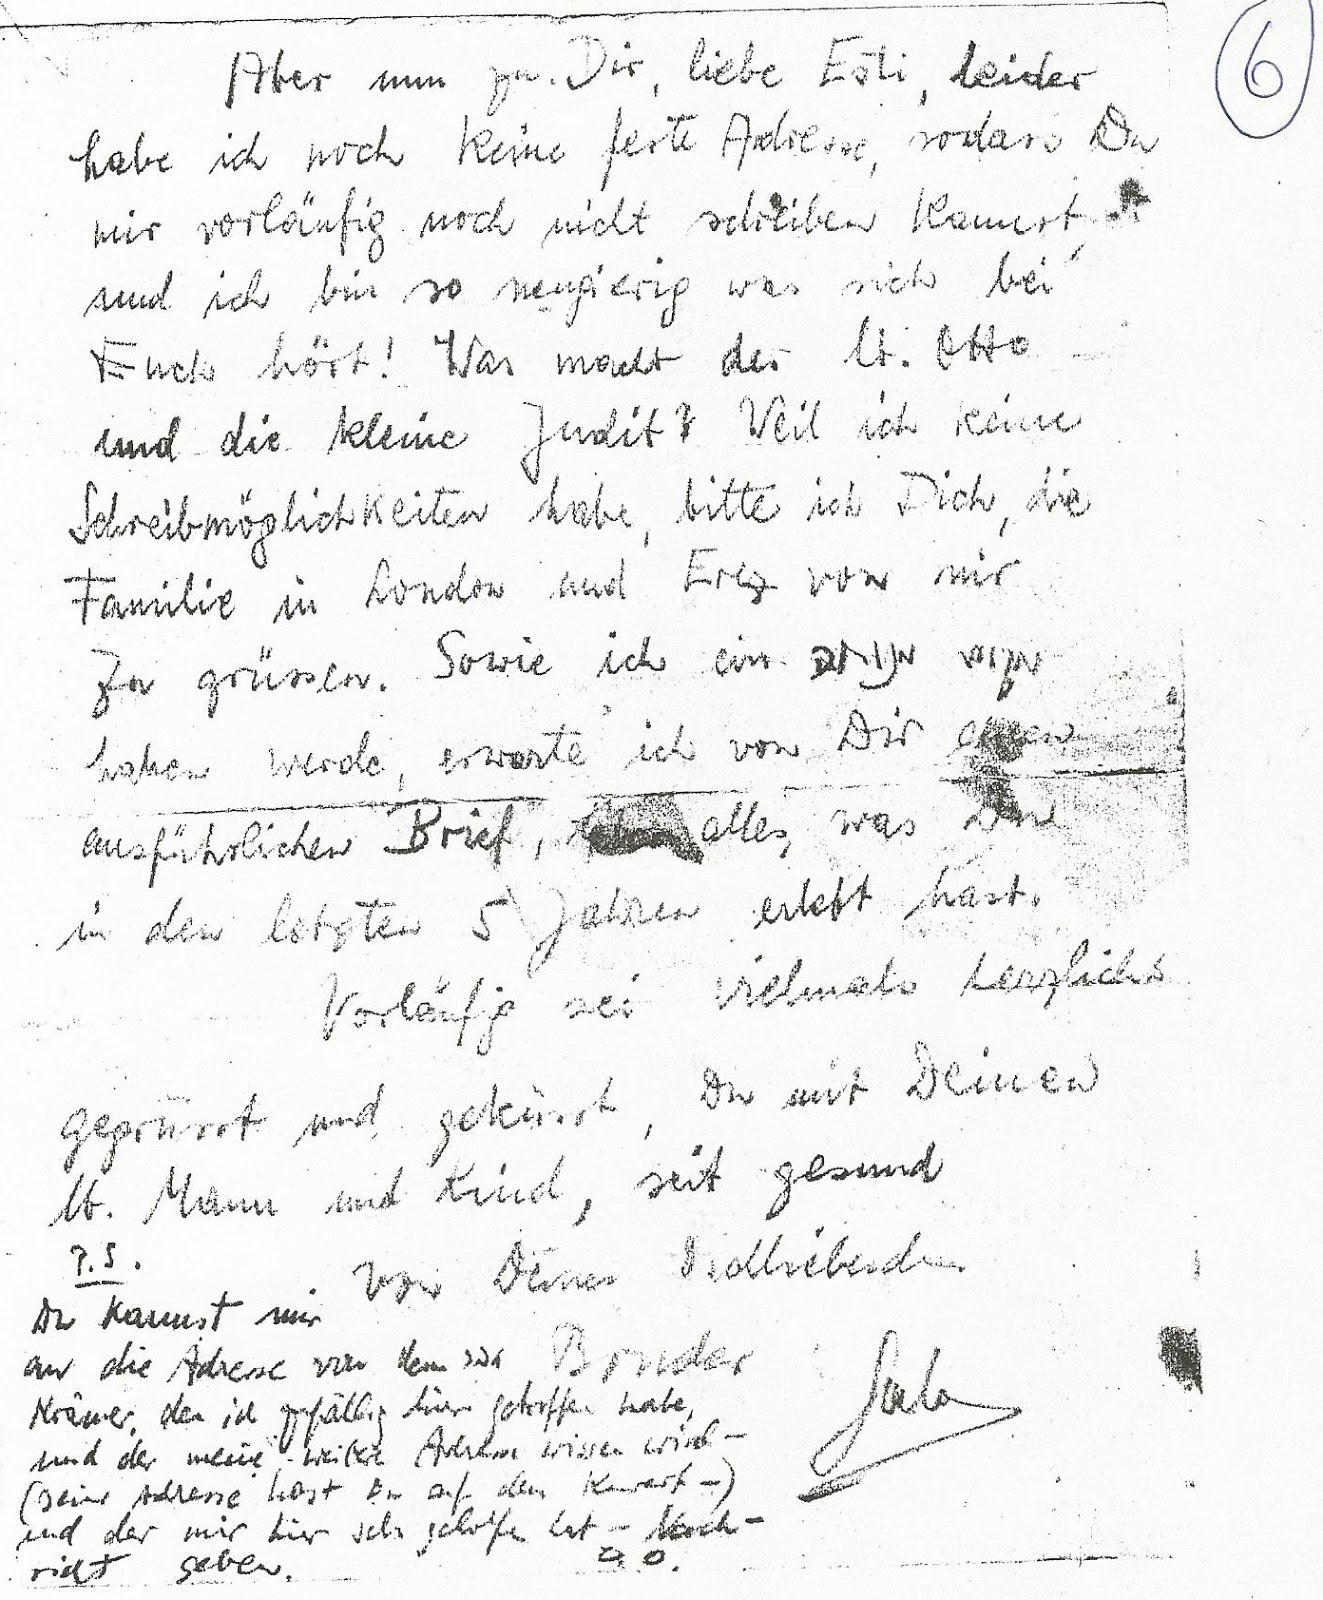 6
Aber nun zu Dir, liebe Esti, leider
habe ich noch keine feste Adresse, sodass Du
mir vorläufig noch nicht schreiben kannst,
und ich bin so neugierig was sich bei
Euch hört! Was macht der lb. Otto
und die kleine Judit? Weil ich keine
Schreibmöglichkeiten habe, bitte ich Dich, die
Familie in London und Erez von mir
zu grüssen. Sowie ich ein
haben werde, erwarte ich von Dir einen
ausführlichen Brief, alles, was Du
in den letzten 5 Jahren erlebt hast.
Vorläufig sei vielmals herzlichs
gegrüsst und geküsst, Du mit Deinen
lb. Mann und Kind, seit gesund
von Deinen Dichliebenden
Bruder
P.S.
Du kannst mir
an die Adresse von dem
Krämer, den ich zufällig hier getroffen habe,
und der meine weitere Adresse wissen wird –
(seine Adresse hast Du auf dem Kuvert –)
und der mir hier sehr geholfen hat – Nach-
richt geben.
D.O.